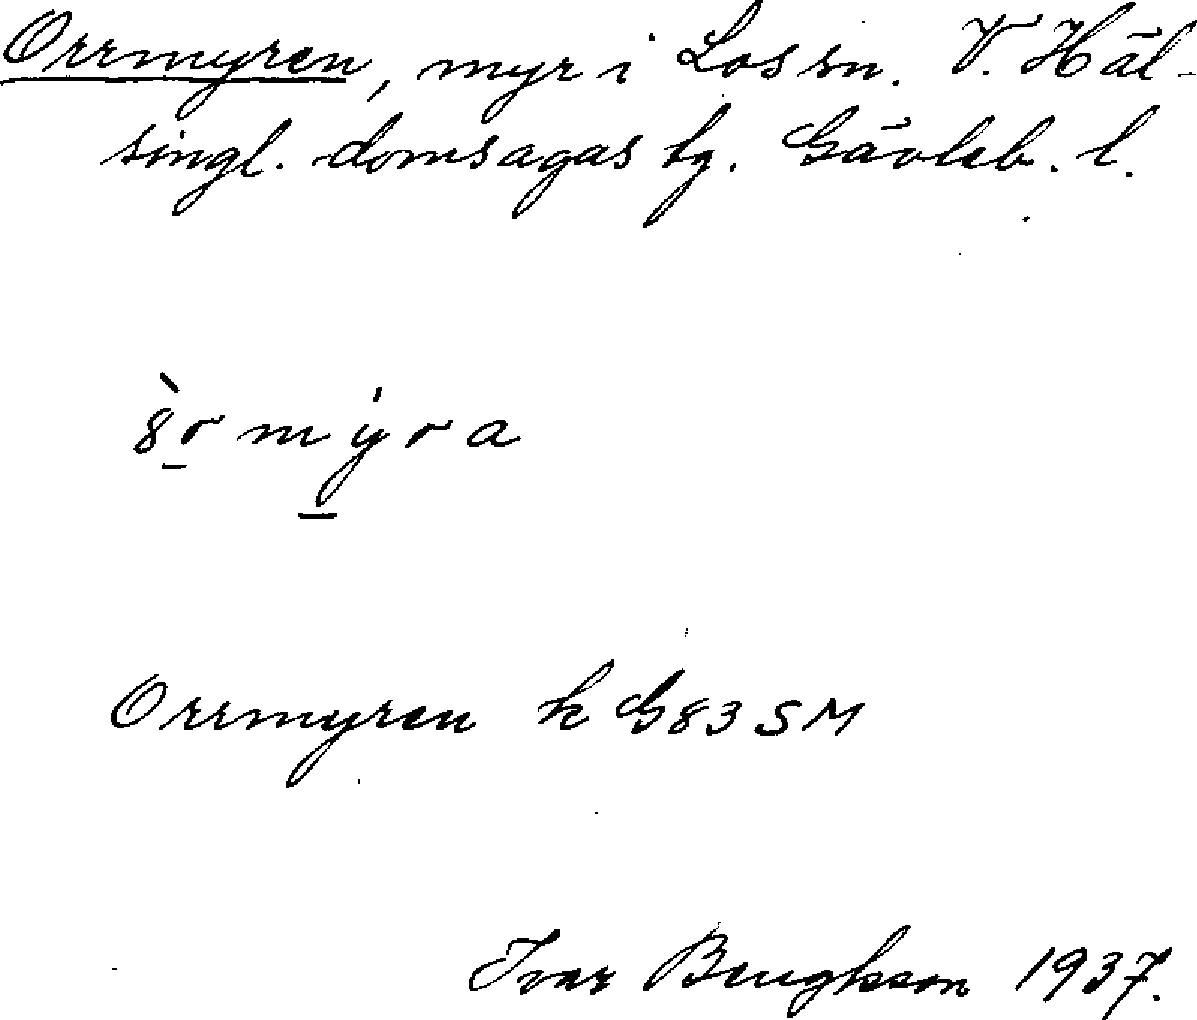 Orrmyren, myr i Los sn. V. Häl-
singl. domsagas tg. Gävleb. l.
8̀r̲ my̲̍ra
Orrmyren k G83SM
Ivar Bengtsson 1937.